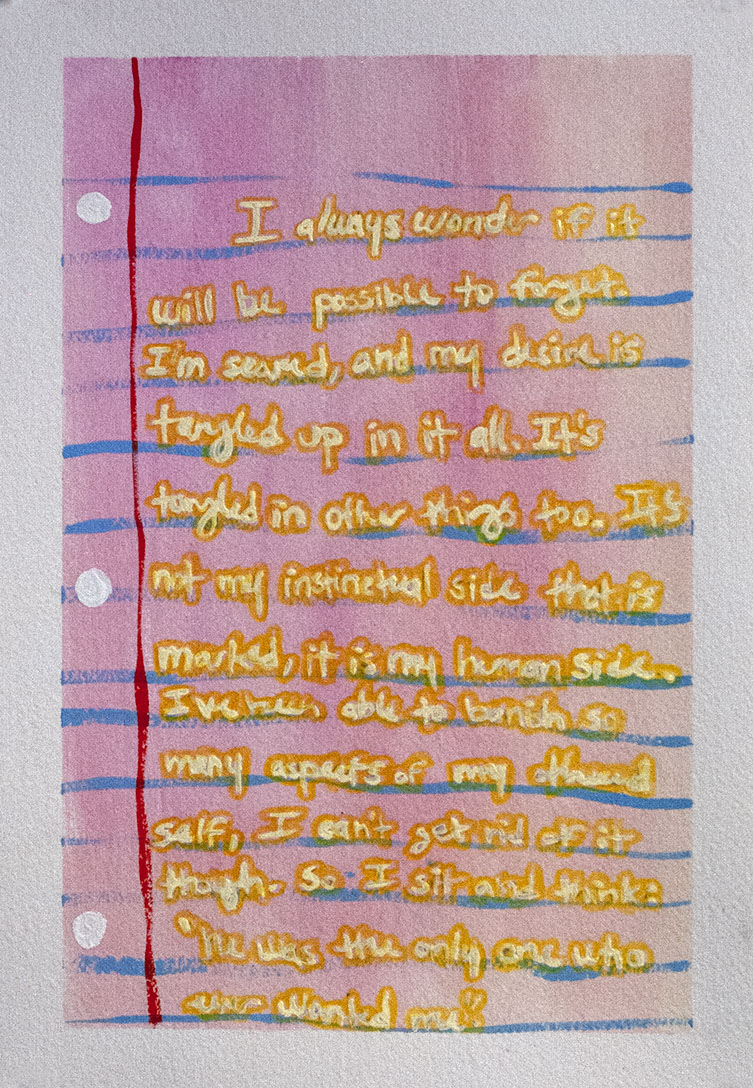 I always wonder if it
will be possible to forget.
I'm scared, and my desire is
tangled up in it all. It's
tangled in other things too. It's
not my instinctual side that is
marked, it is my human side.
I've been able to banish so
many aspects of my
self, I can't get rid of it
though. So I sit and think:
"he was the only one who
ever wanted me."